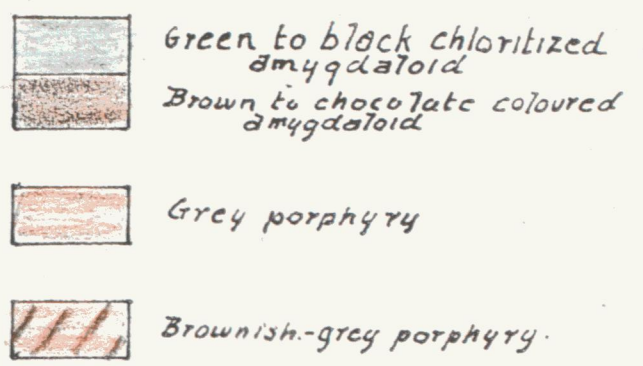 Green to black chloritized
amygdaloid
Brown to chocolate coloured
amygdaloid
Grey porphyry
Brownish-grey porphyry.